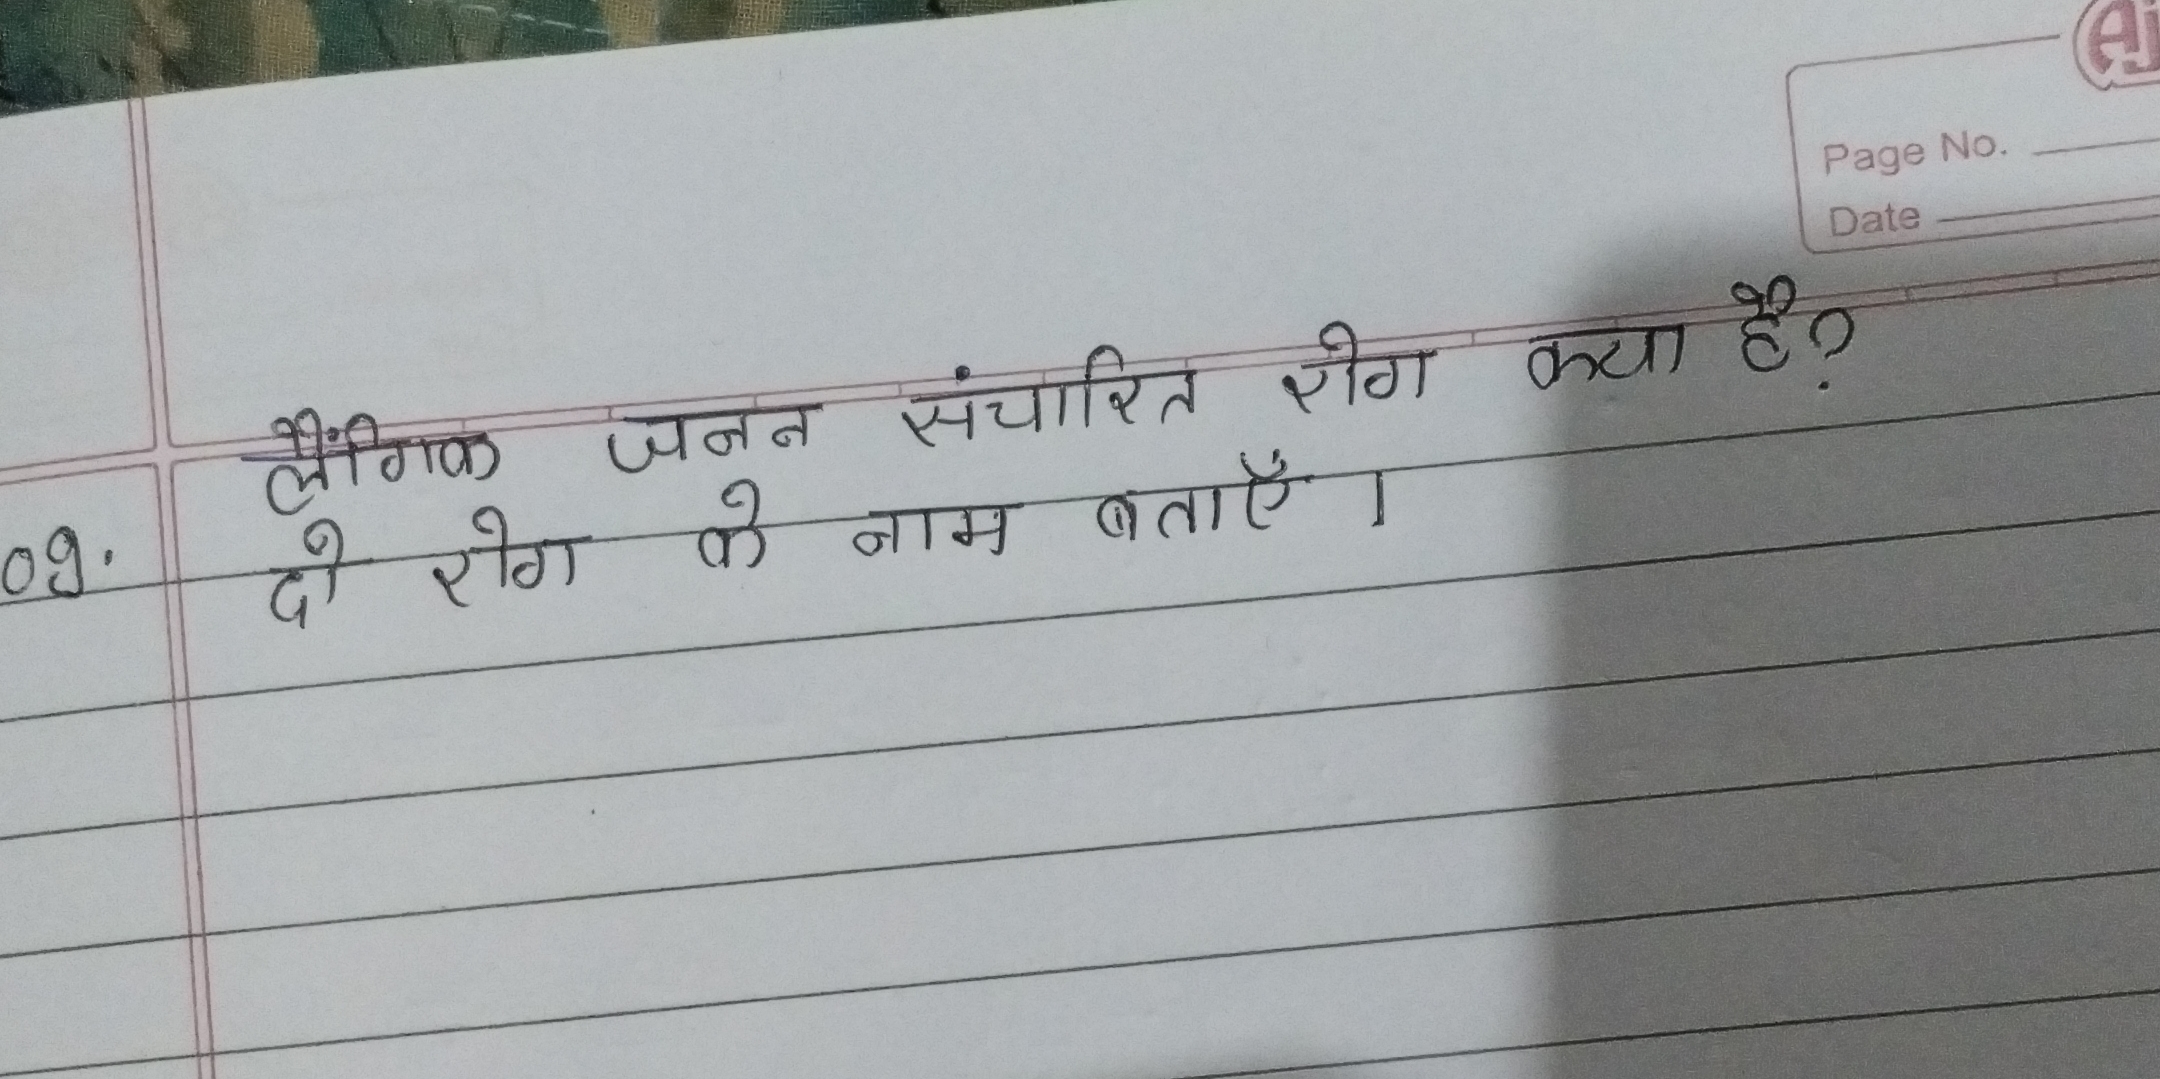 Aj
Page No.
Date
लैंगिक जनन संचारित रोग क्या है?
09. दो रोग के नाम बताएँ ।